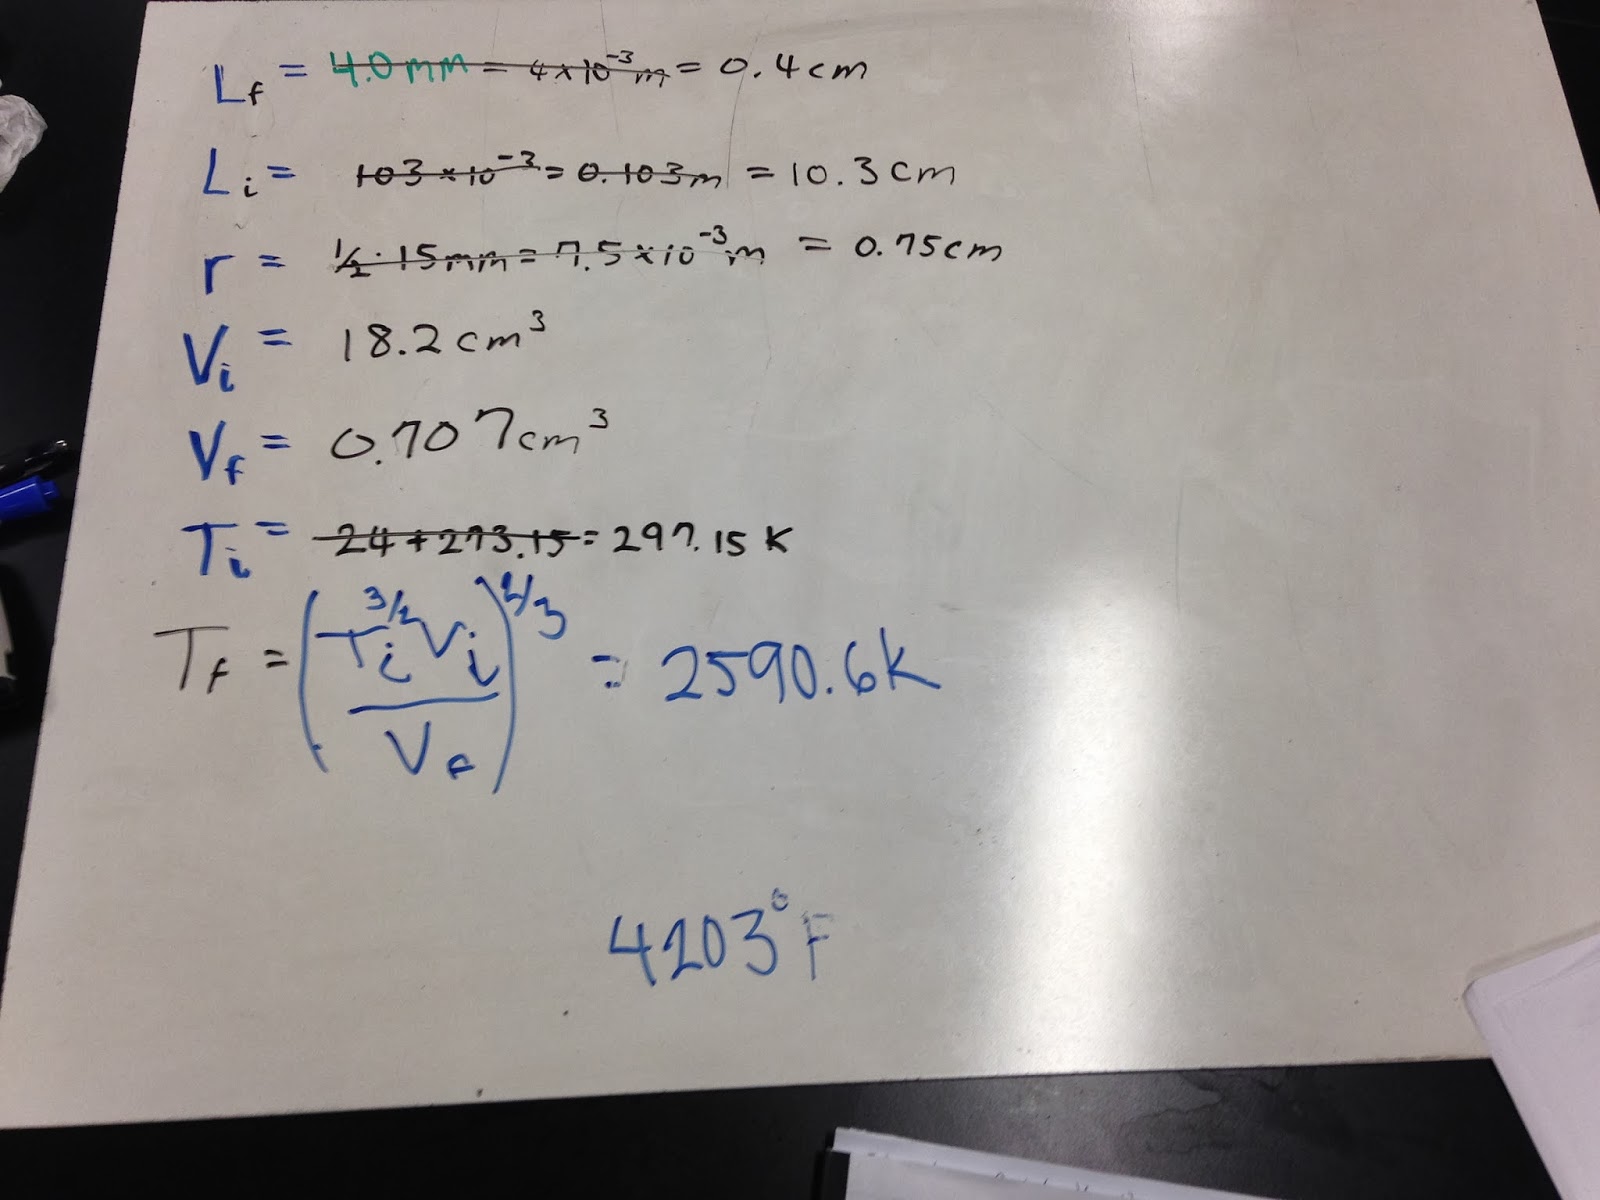 Lf = 4.0mm = 4×10⁻³m = 0.4cm
Li = 103×10⁻³ = 0.103m = 10.3cm
r = 1/2·15mm = 7.5×10⁻³m = 0.75cm
Vi = 18.2cm³
Vf = 0.707cm³
Ti = 24+273.15 = 297.15 K
Tf = (Ti^3/2 Vi / Vf)^2/3 = 2590.6K
4203°F